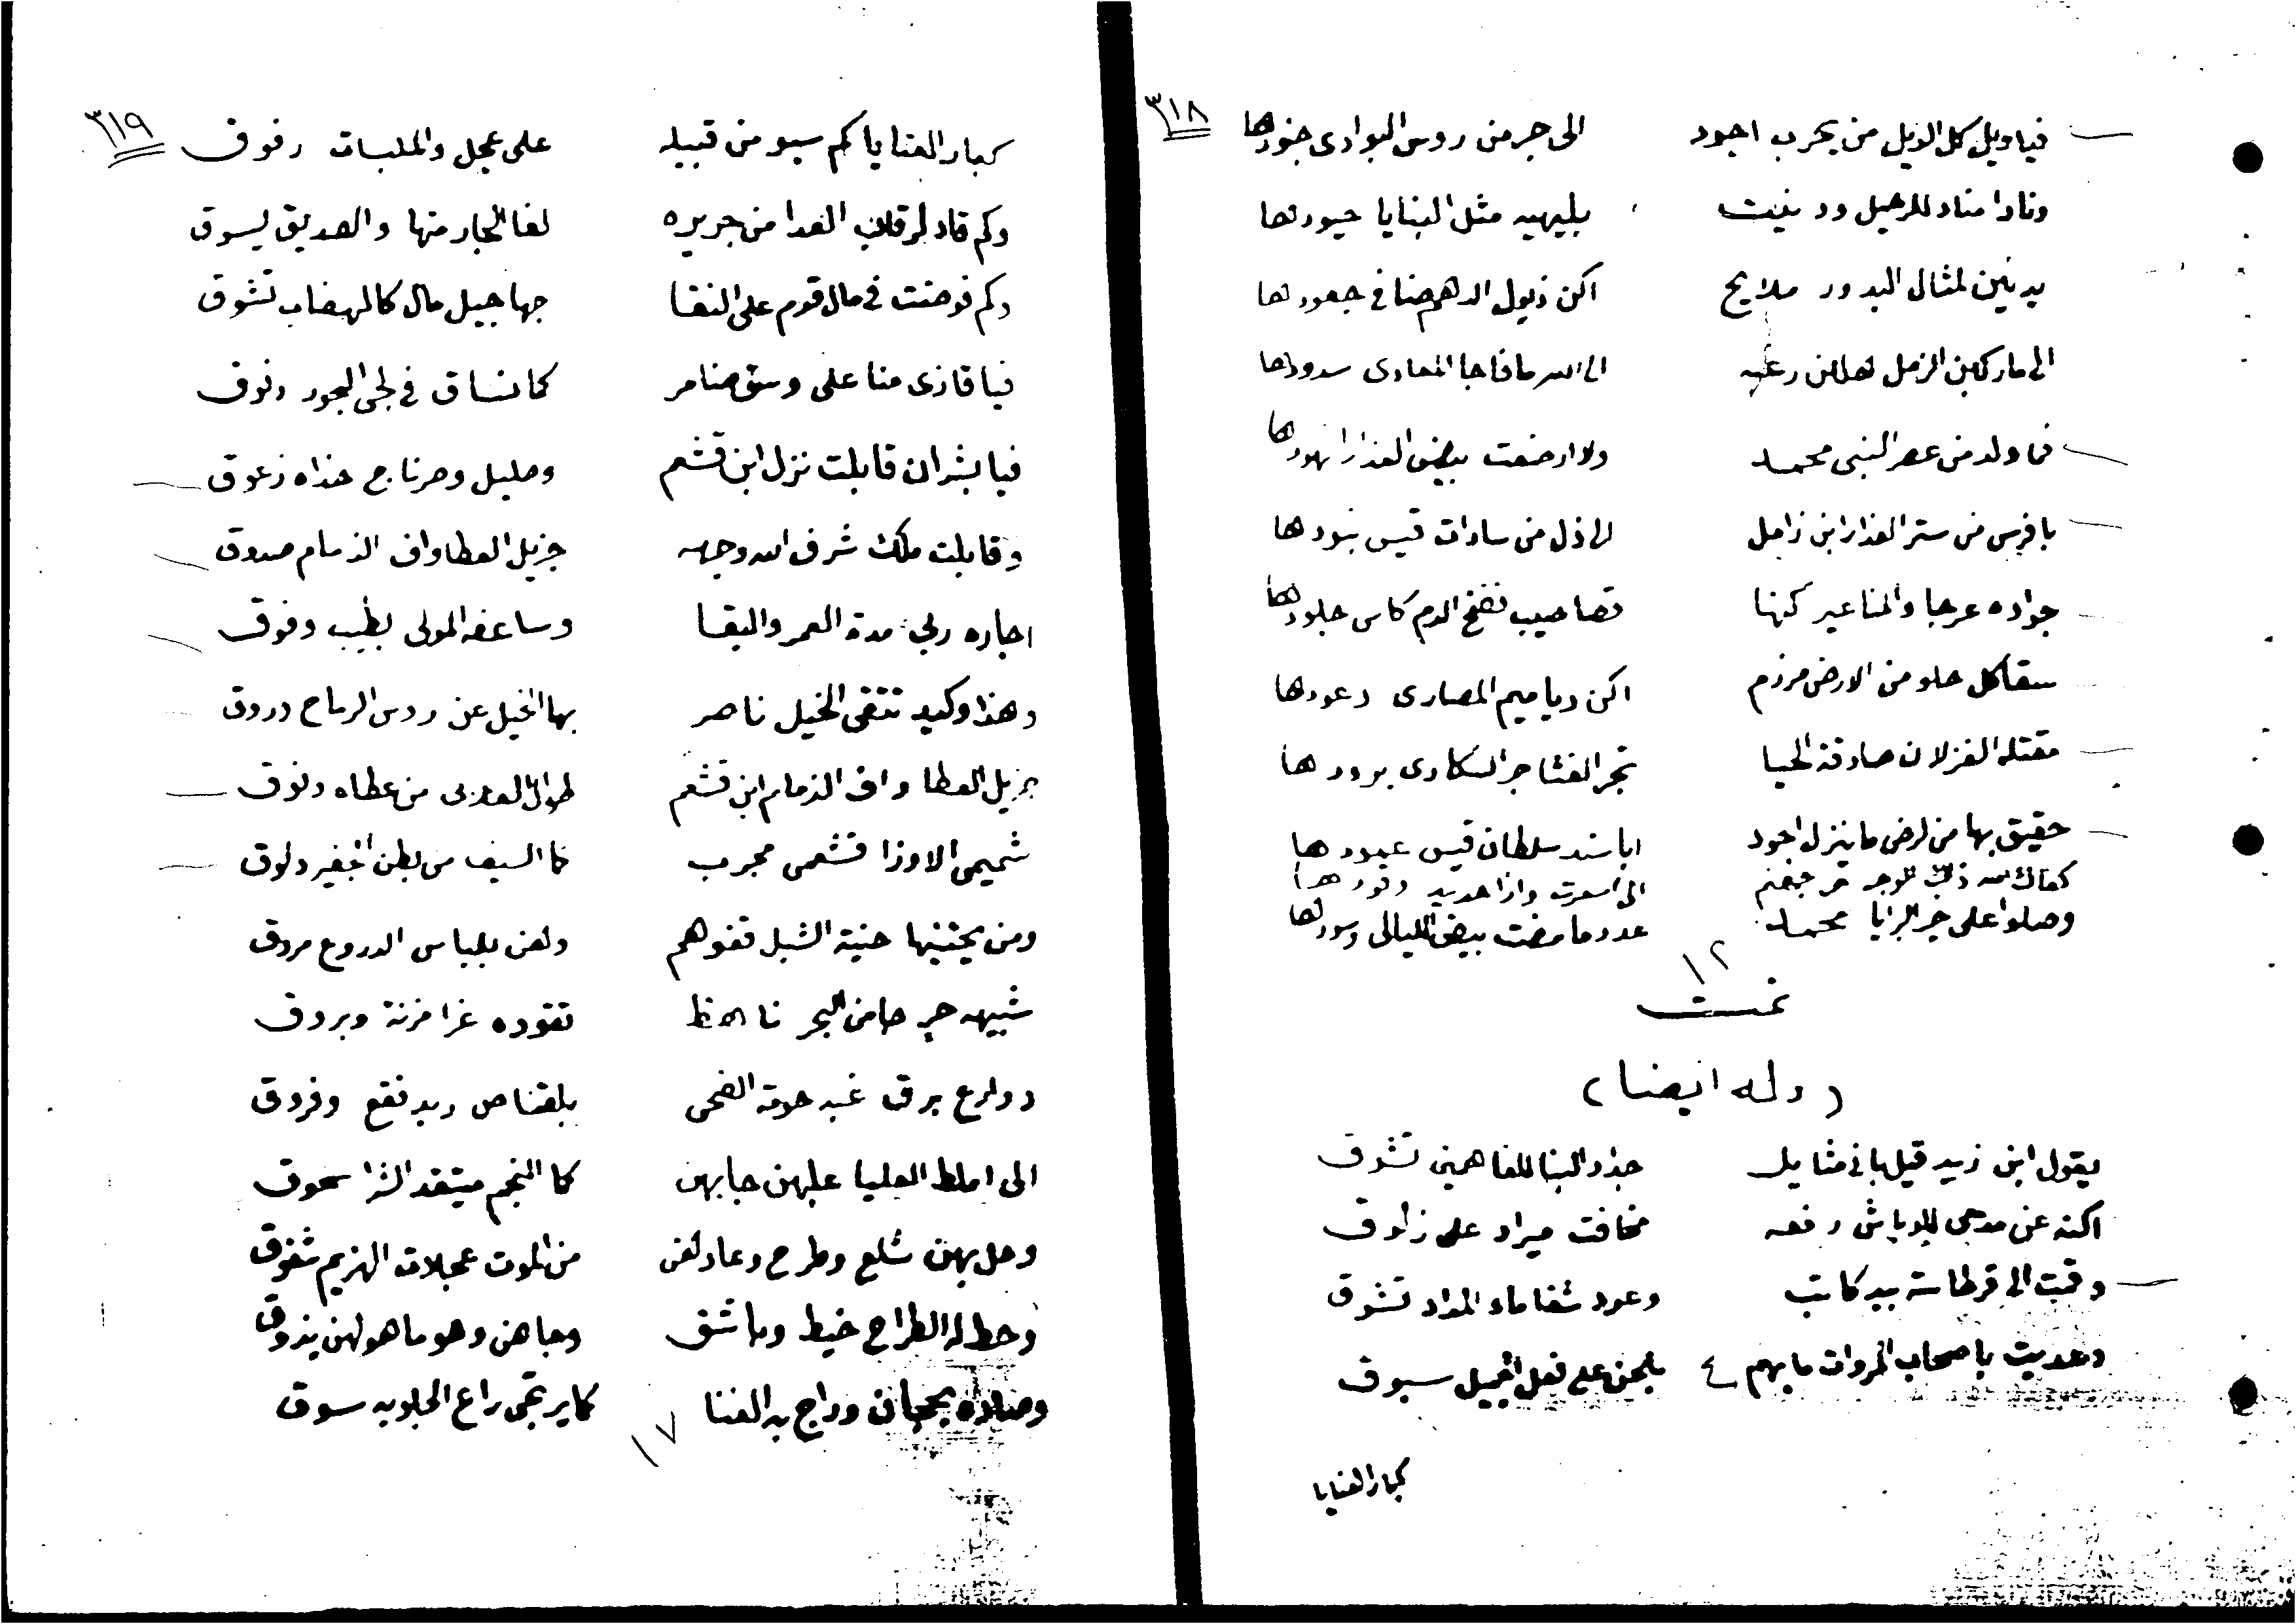 ٣١٨
فيا ويل كل الويل من يحرب اجود الى جر من روس البوادى جنودها
ونادا مناد للرحيل ود نيت بليهيه مثل البنايا حيودها
يدنين لمثال البدور ملايح اكن ذيول الدهم صنا في جعودها
الى ما ركبن الزمل لهللن رعيه الى الله ما فاجا المعادى سدودها
فما ولد من عصر النبي محمد ولا ارضعت بيض العذارا نهودها
بافرس من ستر العذارا بن زامل الى ذل من سادات قيس بنودها
جواده عرجا والمناعير كنها قصاصيب نضخ الدم كاس جلودها
سقا كل حلو من الارض مرزم اكن دياميم المصارى دعودها
مقتلة الغزلان صادقة الحيا تجر الغثا جر السكارى برودها
حقيق بها من ارض ما ينزل اجود ابا سند سلطان قيس عمودها
كفاك الله ذلك الوجه حر جهنم الى اسعرت وازا حديد وقودها
وصلوا على خير البرايا محمد عدد ما مضت بيض الليالى وسودها
١٢
تمت
(وله ايضا)
يقول ابن زيد قيل بانى مثايل جداد البنا للفاهمين تشوق
اكنه عن مدحى للاوباش رفعه مخافت ميراد على زلوق
وقمت الى قرطاسة بيد كاتب وعود شفا ماء المداد تشوق
وعديت باصحاب المروات ما بهم بلجن على فعل الجميل سبوق
كبار العنايا
٣١٩
كبار العنايا كم سبو من قبيله على عجل والملبسات رفوق
وكم قاد لرقاب العدا من جريره لفا الجار منها والصديق يسوق
وكم فوضت في مال قوم على النقا جها جيل مال كالهضاب تشوق
فيا قاذى منا على وسق ضامر كما تساق في لجى البحور دنوق
فيا بشران قابلت نزل ابن قشعم وصليل وصرناج حذاه زعوق
وقابلت ملك شرف الله وجهه جزيل العطا واف الذمام صدوق
اجاره ربي مدة العمر والبقا وساعفه المولى بطيب وفوق
وهذا وكيد تتقى الخيل ناصر بها الخيل عن روس الرماح دروق
جزيل العطا واف الذمام ابن قشعم طوال العدى من عطاه دلوق
شميمي الاوزا قشعمى مجرب كما السيف من بطن الجفير دلوق
ومن يجتنيها حنية الشبل قفوهم ولهن بلباس الدروع مروق
شبيهه جر جا من البحر تقوده غرا مزنة وبروق
دولرع برق غب حومة الضحى بلقناص ربد فقع وفروق
الى املط العليا عليهن جابهن كما النجم ميتقد الشرا سحوق
وحل بهن شلع وطرح وعاد لهن من الموت عجلات الهزيم شفوق
وحط له الطراح خيط وباشق وجاهن وهو ما هو لهن يذوق
وصلاده بحجان وراج به الغنا كما يرتجى راع الجلوبه سوق
١٧